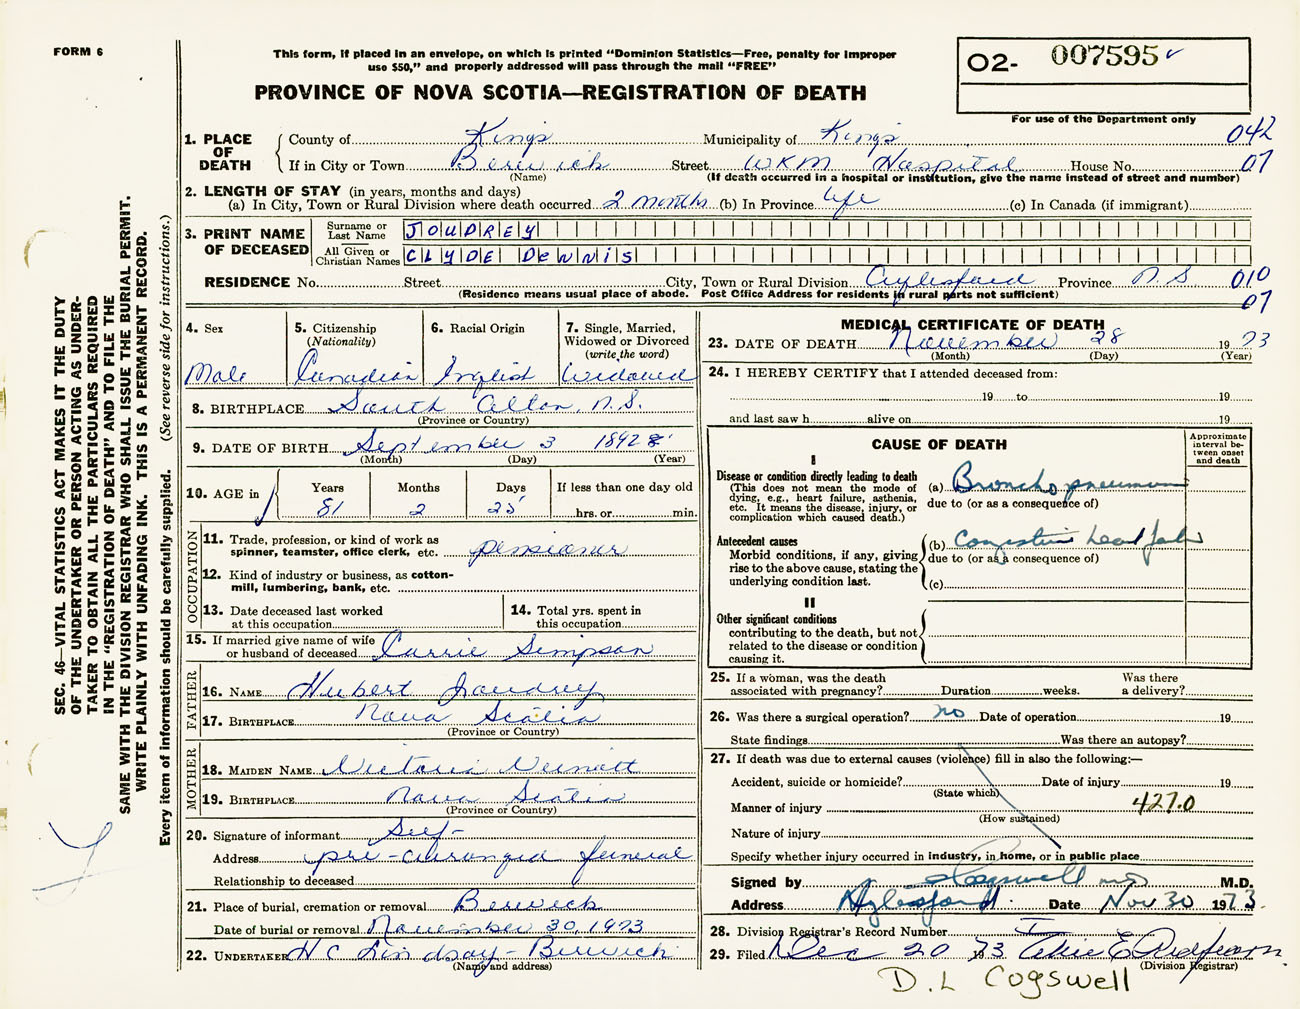 FORM 6
This form, if placed in an envelope, on which is printed “Dominion Statistics—Free, penalty for improper
use $50,” and properly addressed will pass through the mail “FREE”
PROVINCE OF NOVA SCOTIA—REGISTRATION OF DEATH
O2- 007595
For use of the Department only
SEC. 46—VITAL STATISTICS ACT MAKES IT THE DUTY
OF THE UNDERTAKER OR PERSON ACTING AS UNDER-
TAKER TO OBTAIN ALL THE PARTICULARS REQUIRED
IN THE "REGISTRATION OF DEATH" AND TO FILE THE
SAME WITH THE DIVISION REGISTRAR WHO SHALL ISSUE THE BURIAL PERMIT.
WRITE PLAINLY WITH UNFADING INK. THIS IS A PERMANENT RECORD.
Every item of information should be carefully supplied. (See reverse side for instructions.)
1. PLACE OF DEATH
County of Kings Municipality of Kings 042
If in City or Town Berwick Street WKM Hospital House No. 07
(Name) (If death occurred in a hospital or institution, give the name instead of street and number)
2. LENGTH OF STAY (in years, months and days)
(a) In City, Town or Rural Division where death occurred 2 months (b) In Province life (c) In Canada (if immigrant)
3. PRINT NAME OF DECEASED
Surname or Last Name JOUDREY
All Given or Christian Names CLYDE DENNIS
RESIDENCE No. Street City, Town or Rural Division Aylesford Province N.S 010
(Residence means usual place of abode. Post Office Address for residents in rural parts not sufficient) 07
4. Sex Male
5. Citizenship (Nationality) Canadian
6. Racial Origin English
7. Single, Married, Widowed or Divorced (write the word) Widowed
8. BIRTHPLACE South Alton, N.S.
(Province or Country)
9. DATE OF BIRTH September 3 1892
(Month) (Day) (Year)
10. AGE in Years 81 Months 2 Days 25 If less than one day old hrs. or min.
OCCUPATION
11. Trade, profession, or kind of work as
spinner, teamster, office clerk, etc. pensioner
12. Kind of industry or business, as cotton-
mill, lumbering, bank, etc.
13. Date deceased last worked
at this occupation
14. Total yrs. spent in
this occupation
15. If married give name of wife
or husband of deceased Carrie Simpson
FATHER
16. NAME Hubert Joudrey
17. BIRTHPLACE Nova Scotia
(Province or Country)
MOTHER
18. MAIDEN NAME Victoria
19. BIRTHPLACE Nova Scotia
(Province or Country)
20. Signature of informant Self-
Address pre-arranged funeral
Relationship to deceased
21. Place of burial, cremation or removal Berwick
Date of burial or removal November 30, 1973
22. UNDERTAKER H C Lindsay - Berwick
(Name and address)
MEDICAL CERTIFICATE OF DEATH
23. DATE OF DEATH November 28 1973
(Month) (Day) (Year)
24. I HEREBY CERTIFY that I attended deceased from:
19 to 19
and last saw h alive on 19
CAUSE OF DEATH
Approximate interval be-tween onset and death
I
Disease or condition directly leading to death
(This does not mean the mode of
dying, e.g., heart failure, asthenia,
etc. It means the disease, injury, or
complication which caused death.)
(a) Bronchopneumonia
due to (or as a consequence of)
Antecedent causes
Morbid conditions, if any, giving
rise to the above cause, stating the
underlying condition last.
(b) Congestive heart failure
due to (or as a consequence of)
(c)
II
Other significant conditions
contributing to the death, but not
related to the disease or condition
causing it.
25. If a woman, was the death Was there
associated with pregnancy? Duration weeks. a delivery?
26. Was there a surgical operation? no Date of operation 19
State findings Was there an autopsy?
27. If death was due to external causes (violence) fill in also the following:—
Accident, suicide or homicide? Date of injury 19
(State which)
Manner of injury 427.0
(How sustained)
Nature of injury
Specify whether injury occurred in industry, in home, or in public place
Signed by Cogswell MD M.D.
Address Aylesford Date Nov 30 1973.
28. Division Registrar's Record Number
29. Filed Dec 20 73
(Division Registrar)
D.L Cogswell